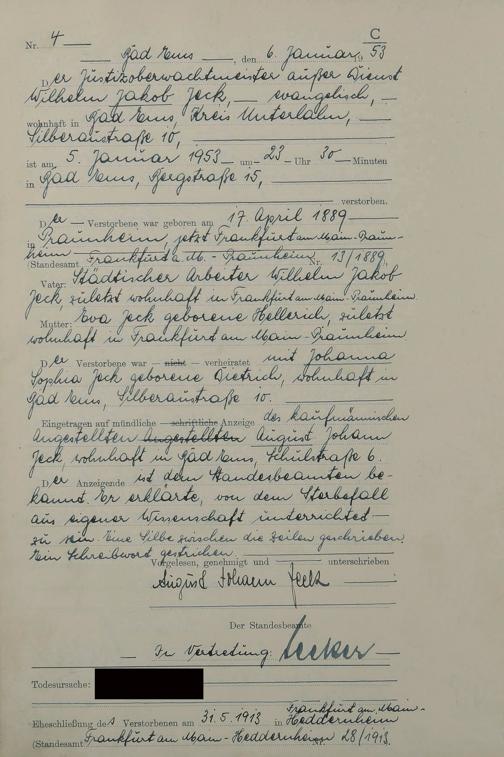 C
Nr. 4
Bad Ems, den 6. Januar 1953
Der Justizoberwachtmeister außer Dienst
Wilhelm Jakob Jeck, evangelisch,
wohnhaft in Bad Ems, Kreis Unterlahn,
Silberaustraße 10,
ist am 5. Januar 1953 um 23 Uhr 30 Minuten
in Bad Ems, Bergstraße 15,
verstorben.
Der Verstorbene war geboren am 17. April 1889
in Praunheim, jetzt Frankfurt am Main-Praun-
heim
(Standesamt Frankfurt a. M. - Praunheim Nr. 13/1889
Vater: Städtischer Arbeiter Wilhelm Jakob
Jeck, zuletzt wohnhaft in Frankfurt am Main-Praunheim
Mutter: Eva Jeck geborene Hellerich, zuletzt
wohnhaft in Frankfurt am Main-Praunheim
Der Verstorbene war nicht verheiratet mit Johanna
Sophia Jeck geborene Dietrich, wohnhaft in
Bad Ems, Silberaustraße 10.
Eingetragen auf mündliche schriftliche Anzeige des kaufmännischen
Angestellten Angestellten August Johann
Jeck, wohnhaft in Bad Ems, Schulstraße 6.
Der Anzeigende ist dem Standesbeamten be-
kannt. Er erklärte, von dem Sterbefall
aus eigener Wissenschaft unterrichtet
zu sein. Eine Silbe zwischen die Zeilen geschrieben.
Ein Schreibwort gestrichen.
Vorgelesen, genehmigt und unterschrieben
August Johann Jeck
Der Standesbeamte
In Vertretung:
Todesursache:
Eheschließung des Verstorbenen am 31.5.1913 in Frankfurt am Main-
Heddernheim
(Standesamt Frankfurt am Main - Heddernheim Nr. 28/1913.